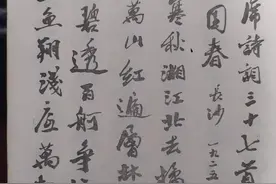 席詩詞三十七首
園春 長沙 一九二五
寒秋湘江北去橘
萬山紅遍層林
碧透百舸爭
魚翔淺底萬